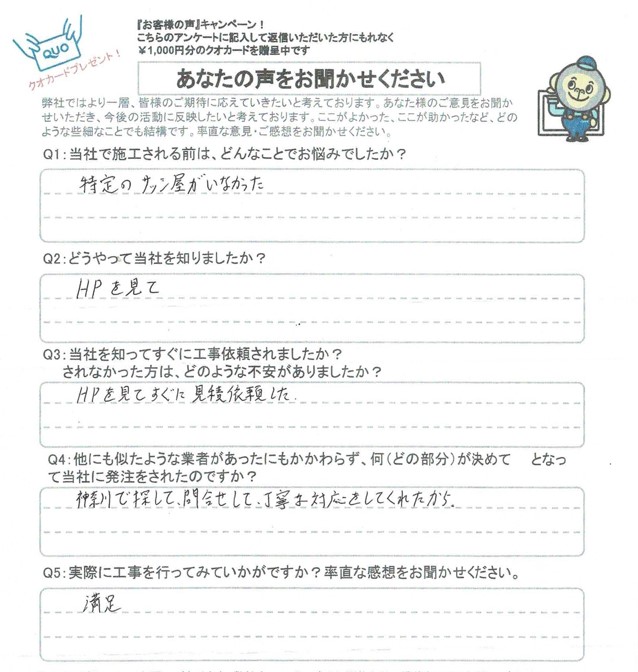 『お客様の声』キャンペーン！
こちらのアンケートに記入して返信いただいた方にもれなく
￥1,000円分のクオカードを贈呈中です
QUO
クオカードプレゼント！
あなたの声をお聞かせください
弊社ではより一層、皆様のご期待に応えていきたいと考えております。あなた様のご意見をお聞か
せいただき、今後の活動に反映したいと考えております。ここがよかった、ここが助かったなど、どの
ような些細なことでも結構です。率直な意見・ご感想をお聞かせください。
Q1：当社で施工される前は、どんなことでお悩みでしたか？
特定の サッシ屋がいなかった
Q2：どうやって当社を知りましたか？
HPを見て
Q3：当社を知ってすぐに工事依頼されましたか？
されなかった方は、どのような不安がありましたか？
HPを見てすぐに見積依頼した.
Q4：他にも似たような業者があったにもかかわらず、何（どの部分）が決めて　となっ
て当社に発注をされたのですか？
神奈川で探して、問合せして、丁寧な対応をしてくれたから.
Q5：実際に工事を行ってみていかがですか？率直な感想をお聞かせください。
満足